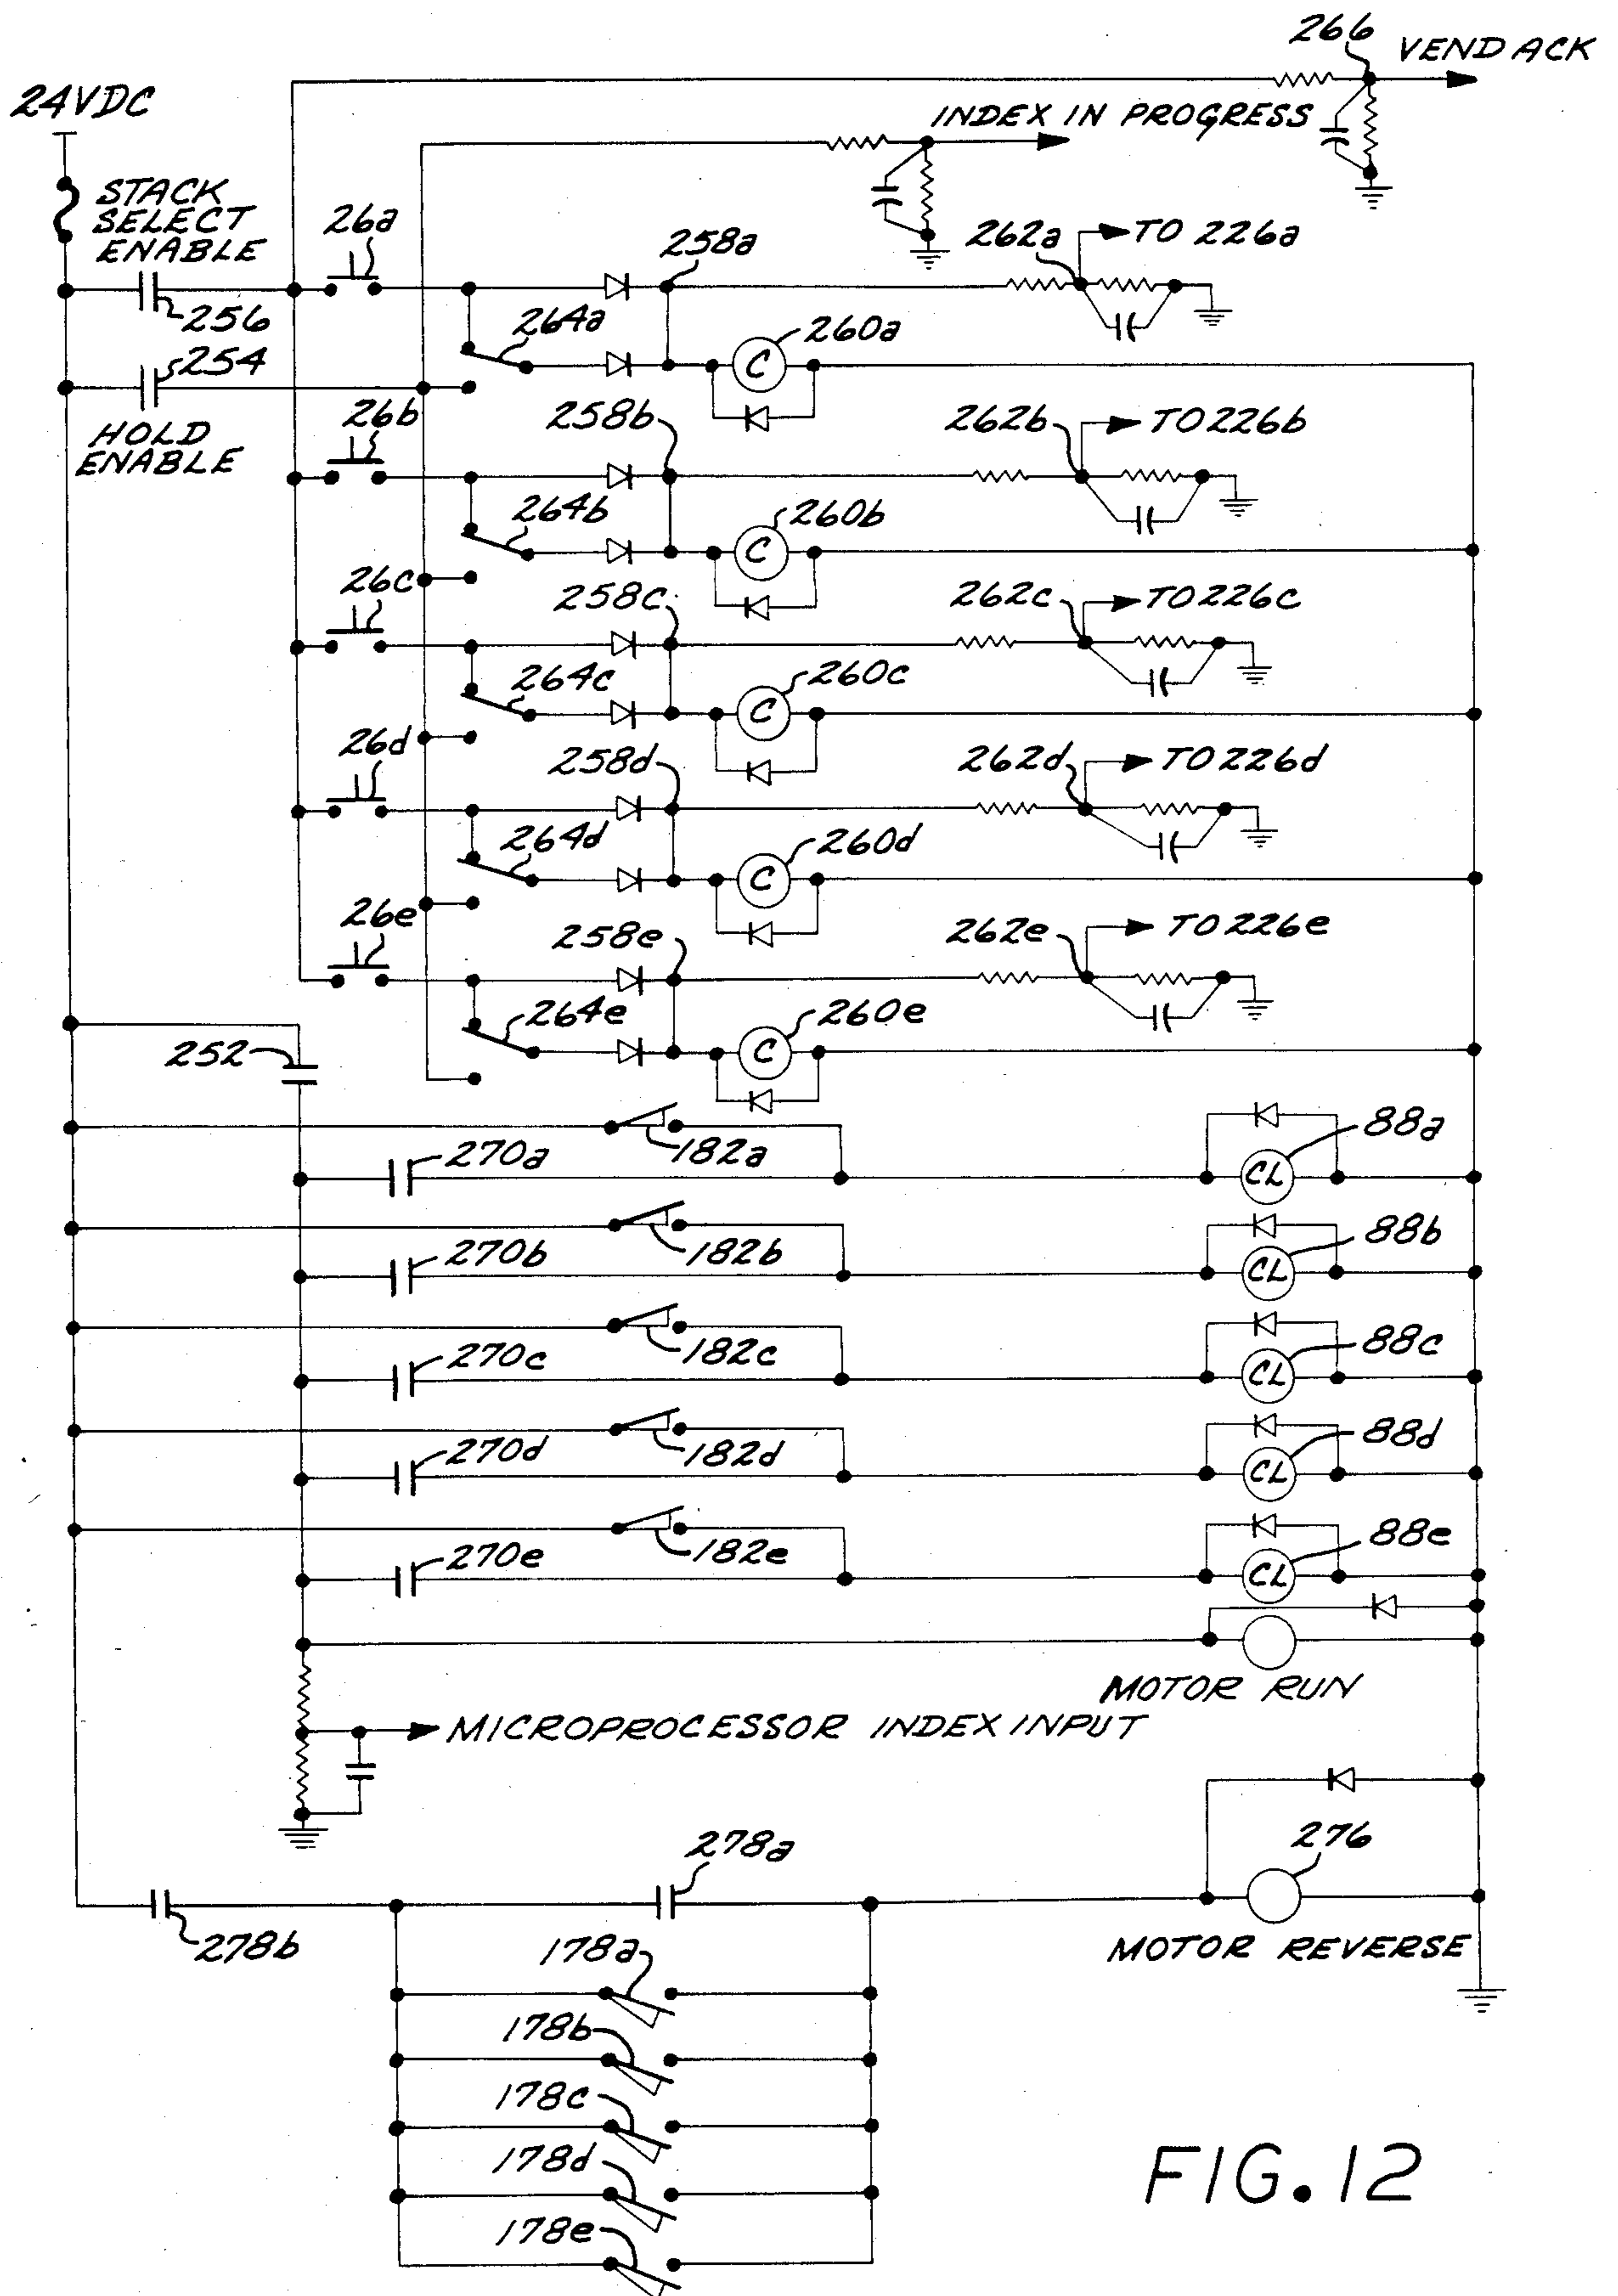 266
VEND ACK
24VDC
INDEX IN PROGRESS
STACK
SELECT
ENABLE
26a
258a
262a
TO 226a
256
264a
260a
254
HOLD
ENABLE
26b
258b
262b
TO 226b
264b
260b
26c
258c
262c
TO 226c
264c
260c
C
C
C
26d
258d
262d
TO 226d
264d
260d
C
26e
258e
262e
TO 226e
264e
260e
C
252
182a
88a
270a
CL
182b
88b
270b
CL
182c
88c
270c
CL
182d
88d
270d
CL
182e
88e
270e
CL
MOTOR RUN
MICROPROCESSOR INDEX INPUT
278a
276
278b
MOTOR REVERSE
178a
178b
178c
178d
178e
FIG. 12